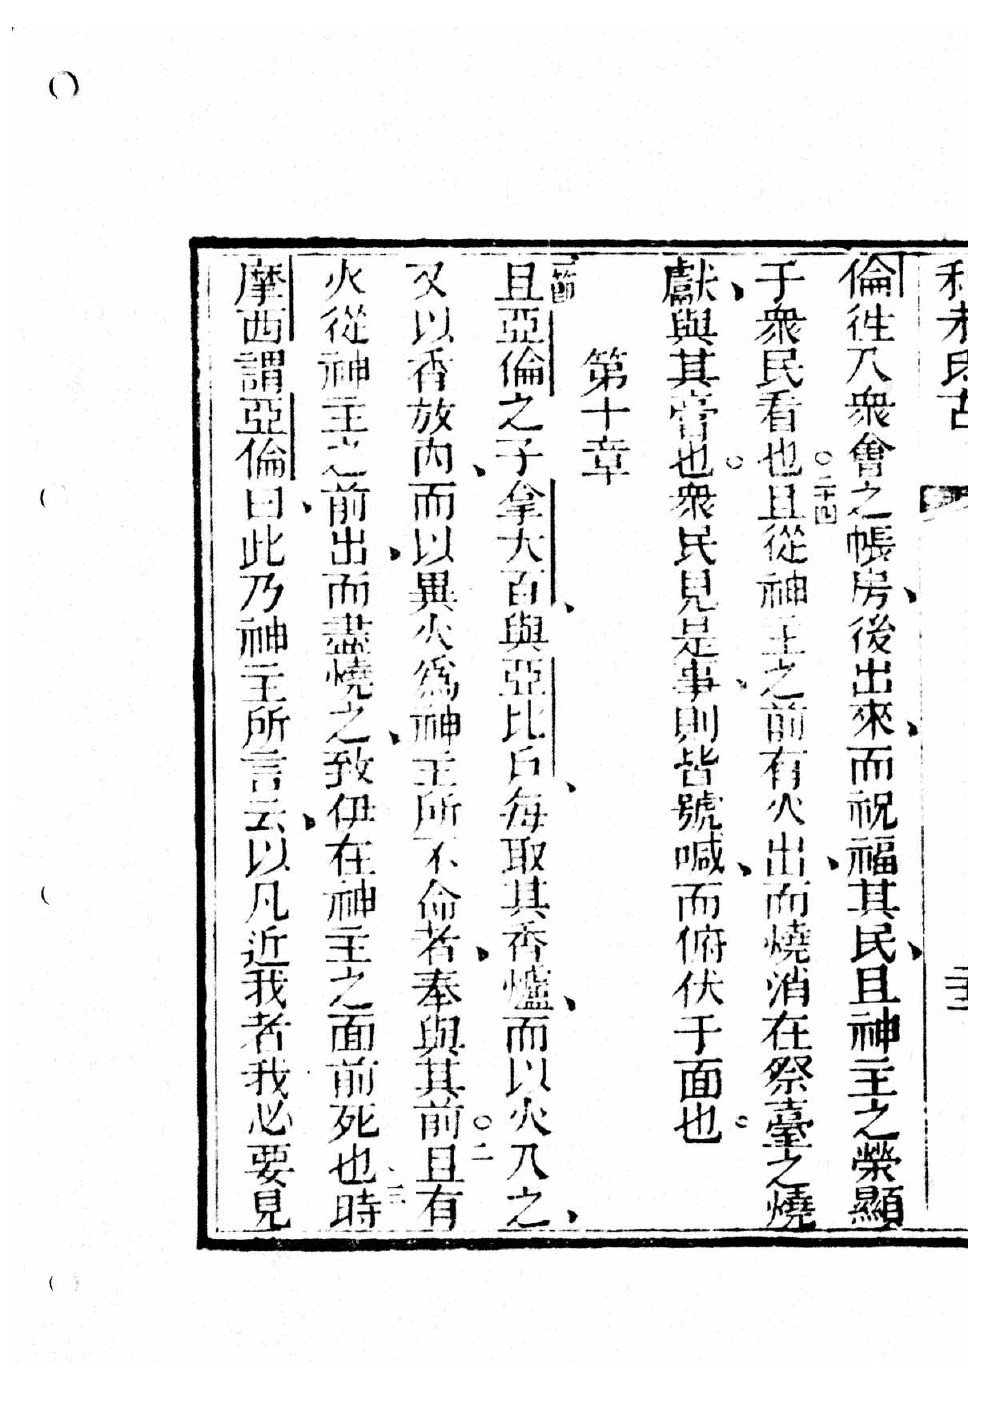 利未氏古
倫徃入衆會之帳房、後出來、而祝福其民、且神主之榮顯
于衆民看也。二十四且從神主之前有火出、而燒消在祭臺之燒
獻、與其膏也。衆民見是事、則皆號喊、而俯伏于面也。
第十章
一節且亞倫之子拿大百、與亞比丘、每取其香爐、而以火入之、
又以香放內、而以異火爲神主所不命者、奉與其前。二且有
火從神主之前出、而盡燒之、致伊在神主之面前死也、三時
摩西謂亞倫曰、此乃神主所言云、以凡近我者我必要見